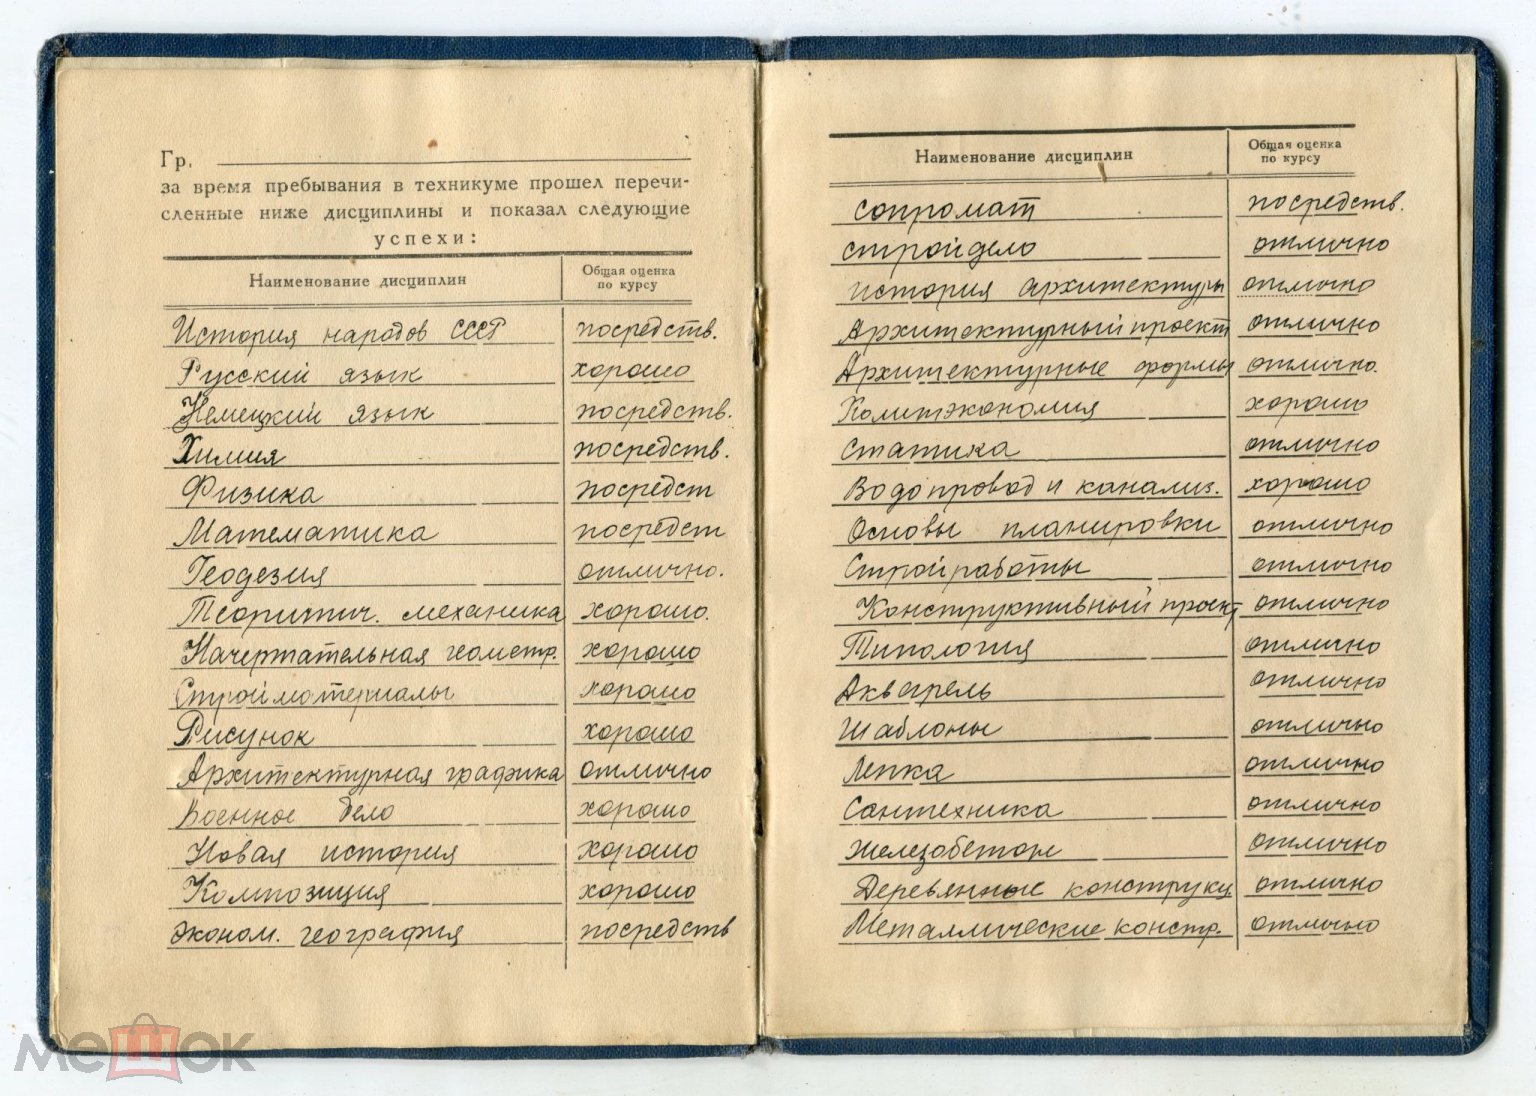 Гр.
за время пребывания в техникуме прошел перечи-
сленные ниже дисциплины и показал следующие
успехи:
Наименование дисциплин Общая оценка по курсу
История народов СССР посредств.
Русский язык хорошо
Немецкий язык посредств.
Химия посредств.
Физика посредст
Математика посредст
Геодезия отлично.
Теоритич. механика хорошо.
Начертательная геометр. хорошо
Стройматериалы хорошо
Рисунок хорошо
Архитектурная графика отлично
Военное дело хорошо
Новая история хорошо
Композиция хорошо
Эконом. география посредств
Наименование дисциплин Общая оценка по курсу
Сопромат посредств.
Стройдело отлично
История архитектуры отлично
Архитектурный проект отлично
Архитектурные формы отлично.
Политэкономия хорошо
Статика отлично
Водопровод и канализ. хорошо
Основы планировки отлично
Стройработы отлично
Конструктивный проект отлично
Типология отлично
Акварель отлично
Шаблоны отлично
Лепка отлично
Сантехника отлично
Железобетон отлично
Деревянные конструкц. отлично
Металлические констр. отлично
мешок